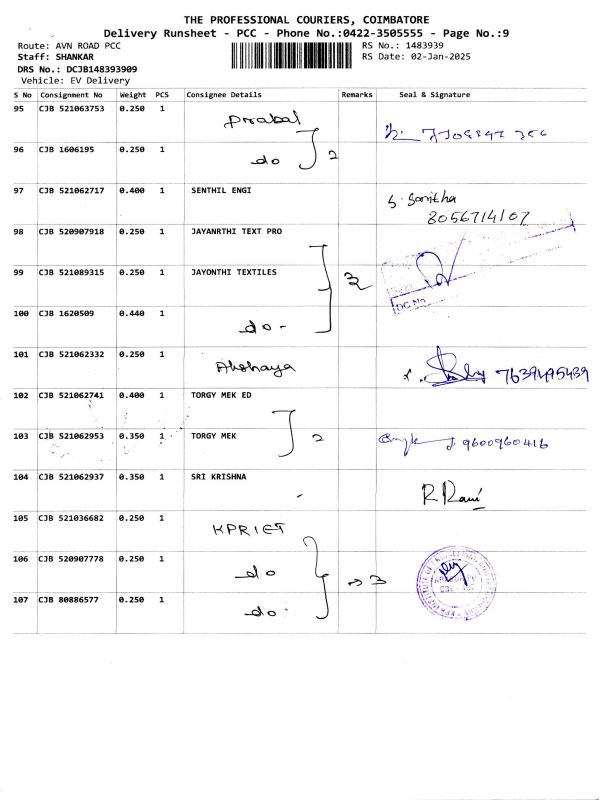 THE PROFESSIONAL COURIERS, COIMBATORE
Delivery Runsheet - PCC - Phone No.:0422-3505555 - Page No.:9
Route: AVN ROAD PCC RS No.: 1483939
Staff: SHANKAR RS Date: 02-Jan-2025
DRS No.: DCJB148393909
Vehicle: EV Delivery
S No Consignment No Weight PCS Consignee Details Remarks Seal & Signature
95 CJB 521063753 0.250 1 Prabal
96 CJB 1606195 0.250 1 do 2
97 CJB 521062717 0.400 1 SENTHIL ENGI S. Sonitha
8056714107
98 CJB 520907918 0.250 1 JAYANRTHI TEXT PRO
99 CJB 521089315 0.250 1 JAYONTHI TEXTILES 3
100 CJB 1620509 0.440 1 do - DC No
101 CJB 521062332 0.250 1 Akshaya 7639495439
102 CJB 521062741 0.400 1 TORGY MEK ED
103 CJB 521062953 0.350 1 TORGY MEK 2 9600960416
104 CJB 521062937 0.350 1 SRI KRISHNA R Rani
105 CJB 521036682 0.250 1 KPRIET
106 CJB 520907778 0.250 1 do 3
107 CJB 80886577 0.250 1 do